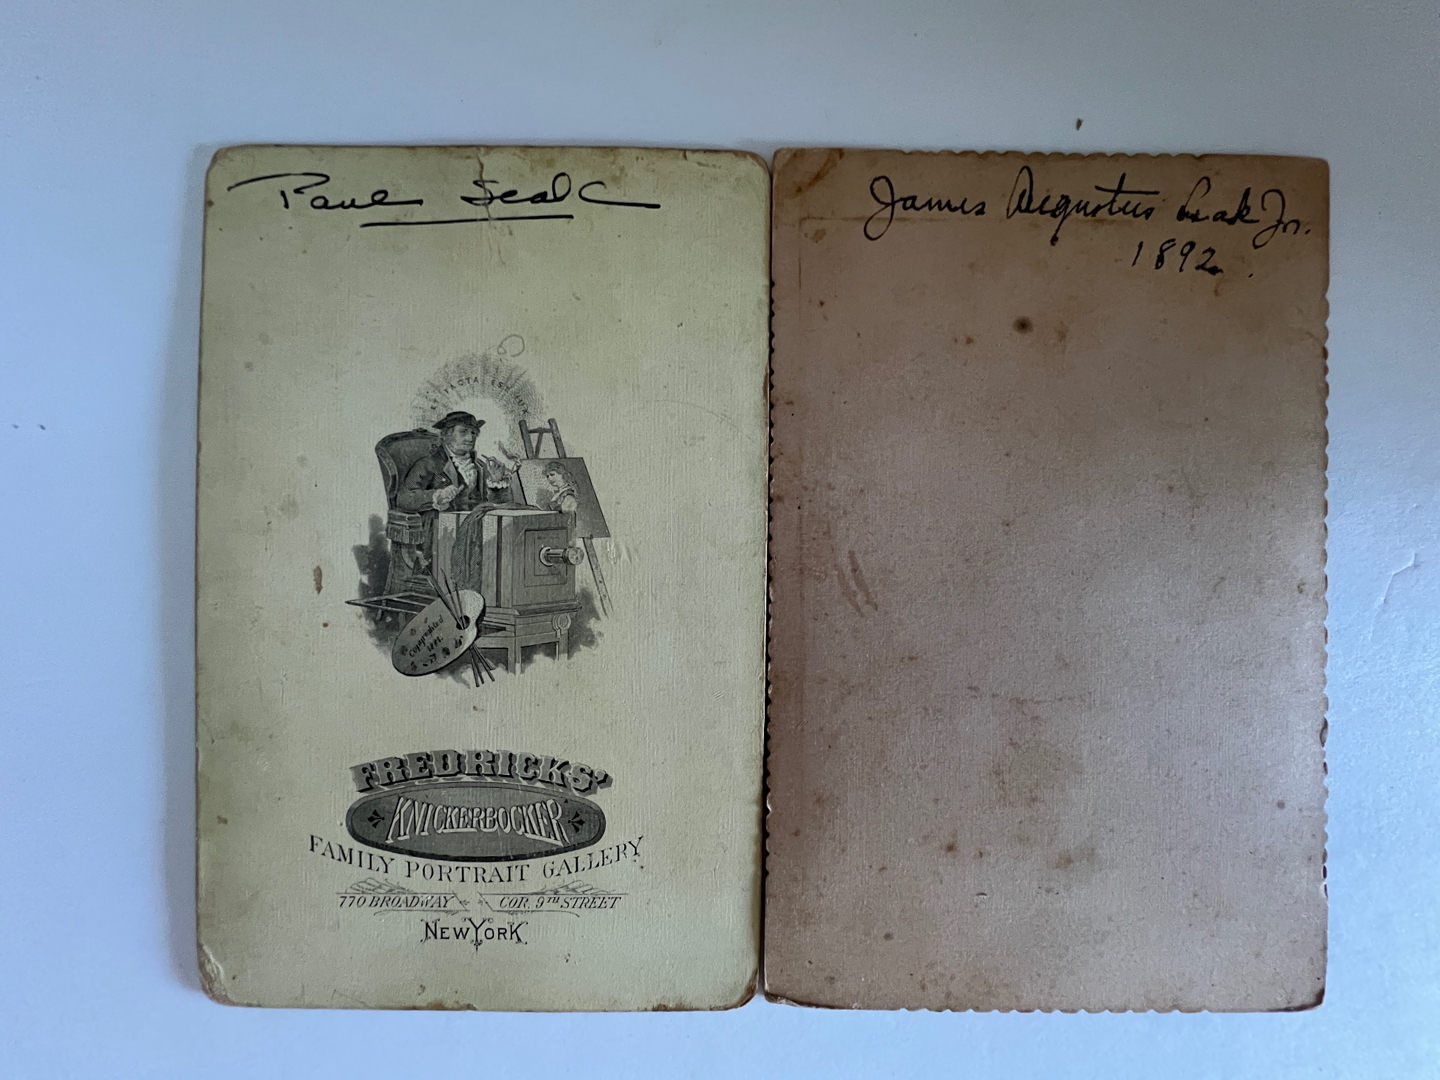 Paul
FREDRICKS'
KNICKERBOCKER
FAMILY PORTRAIT GALLERY
770 BROADWAY COR. 9TH STREET
NEW YORK
James Augustus Jr.
1892